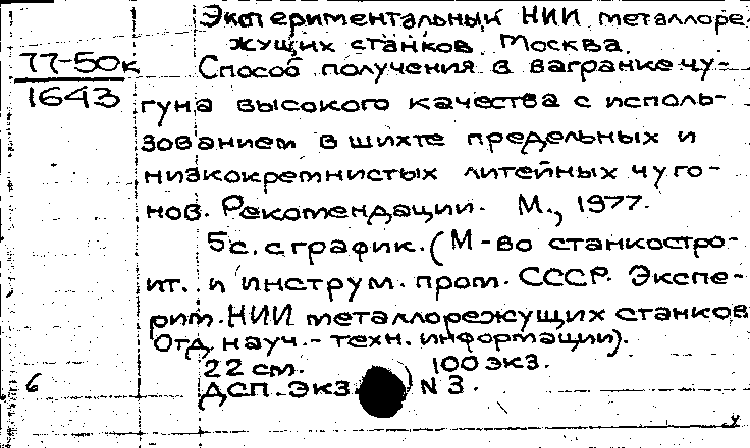 Экспериментальный НИИ металлоре-
жущих станков. Москва.
77-50к
1643
Способ получения в вагранке чу-
гуна высокого качества с исполь-
зованием в шихте предельных и
низкокремнистых литейных чугу-
нов. Рекомендации. М., 1977.
5с. с график. (М-во станкостро-
ит. и инструм. пром. СССР. Экспе-
рим. НИИ металлорежущих станков
Отд. науч.-техн. информации).
22 см. 100 экз.
6
ДСП. Экз. N 3.